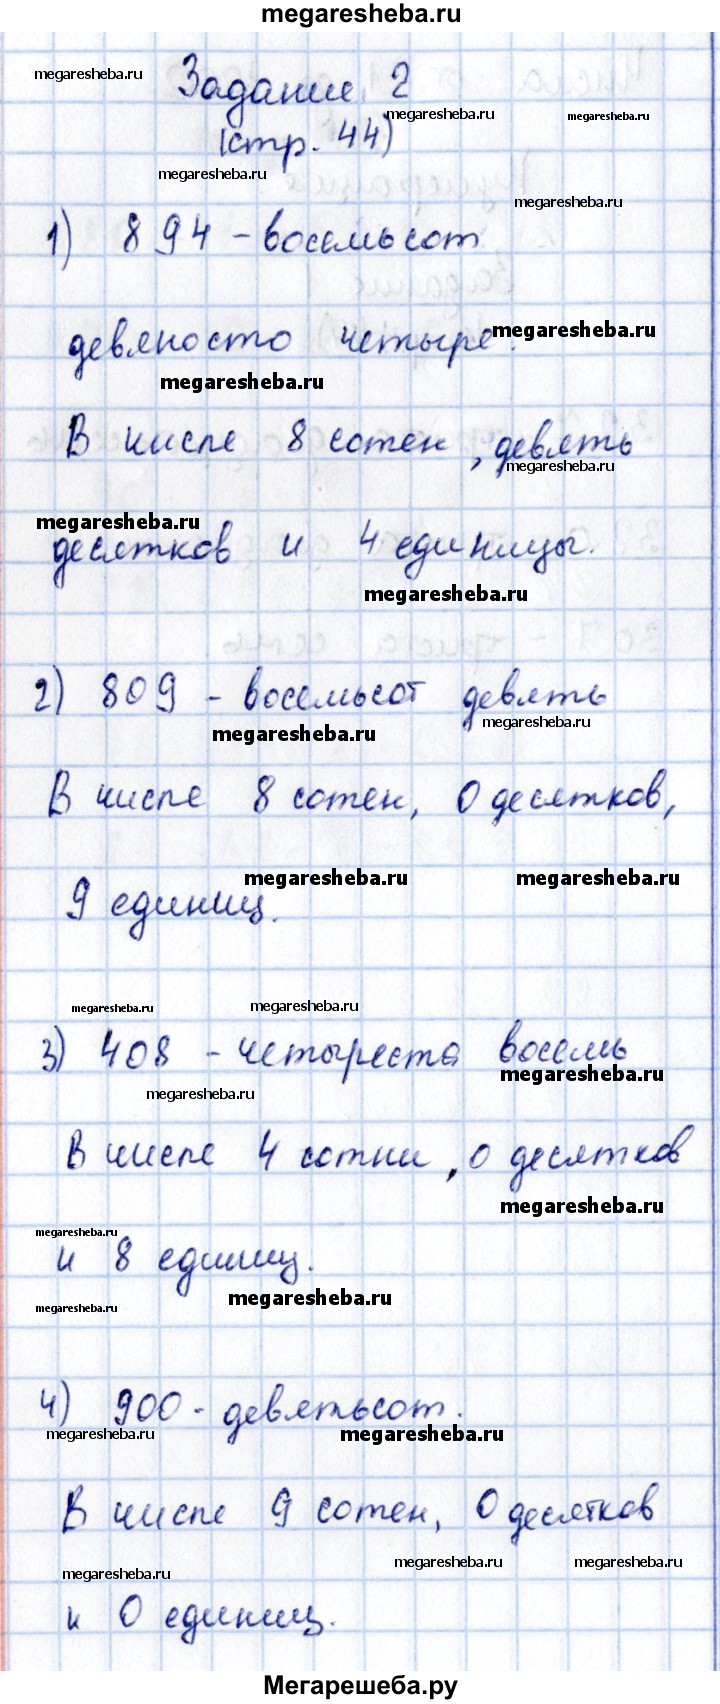 megaresheba.ru
Задание 2
megaresheba.ru
megaresheba.ru
megaresheba.ru
(стр. 44)
megaresheba.ru
megaresheba.ru
1) 894 - восемьсот
девяносто четыре.
megaresheba.ru
megaresheba.ru
В числе 8 сотен, девять
megaresheba.ru
megaresheba.ru
десятков и 4 единицы.
megaresheba.ru
2) 809 - восемьсот девять
megaresheba.ru
megaresheba.ru
В числе 8 сотен, 0 десятков,
megaresheba.ru
megaresheba.ru
9 единиц.
megaresheba.ru
megaresheba.ru
3) 408 - четыреста восемь
megaresheba.ru
megaresheba.ru
В числе 4 сотни, 0 десятков
megaresheba.ru
megaresheba.ru
и 8 единиц.
megaresheba.ru
megaresheba.ru
4) 900 - девятьсот.
megaresheba.ru
megaresheba.ru
В числе 9 сотен, 0 десятков
megaresheba.ru
megaresheba.ru
megaresheba.ru
и 0 единиц.
Мегарешеба.ру